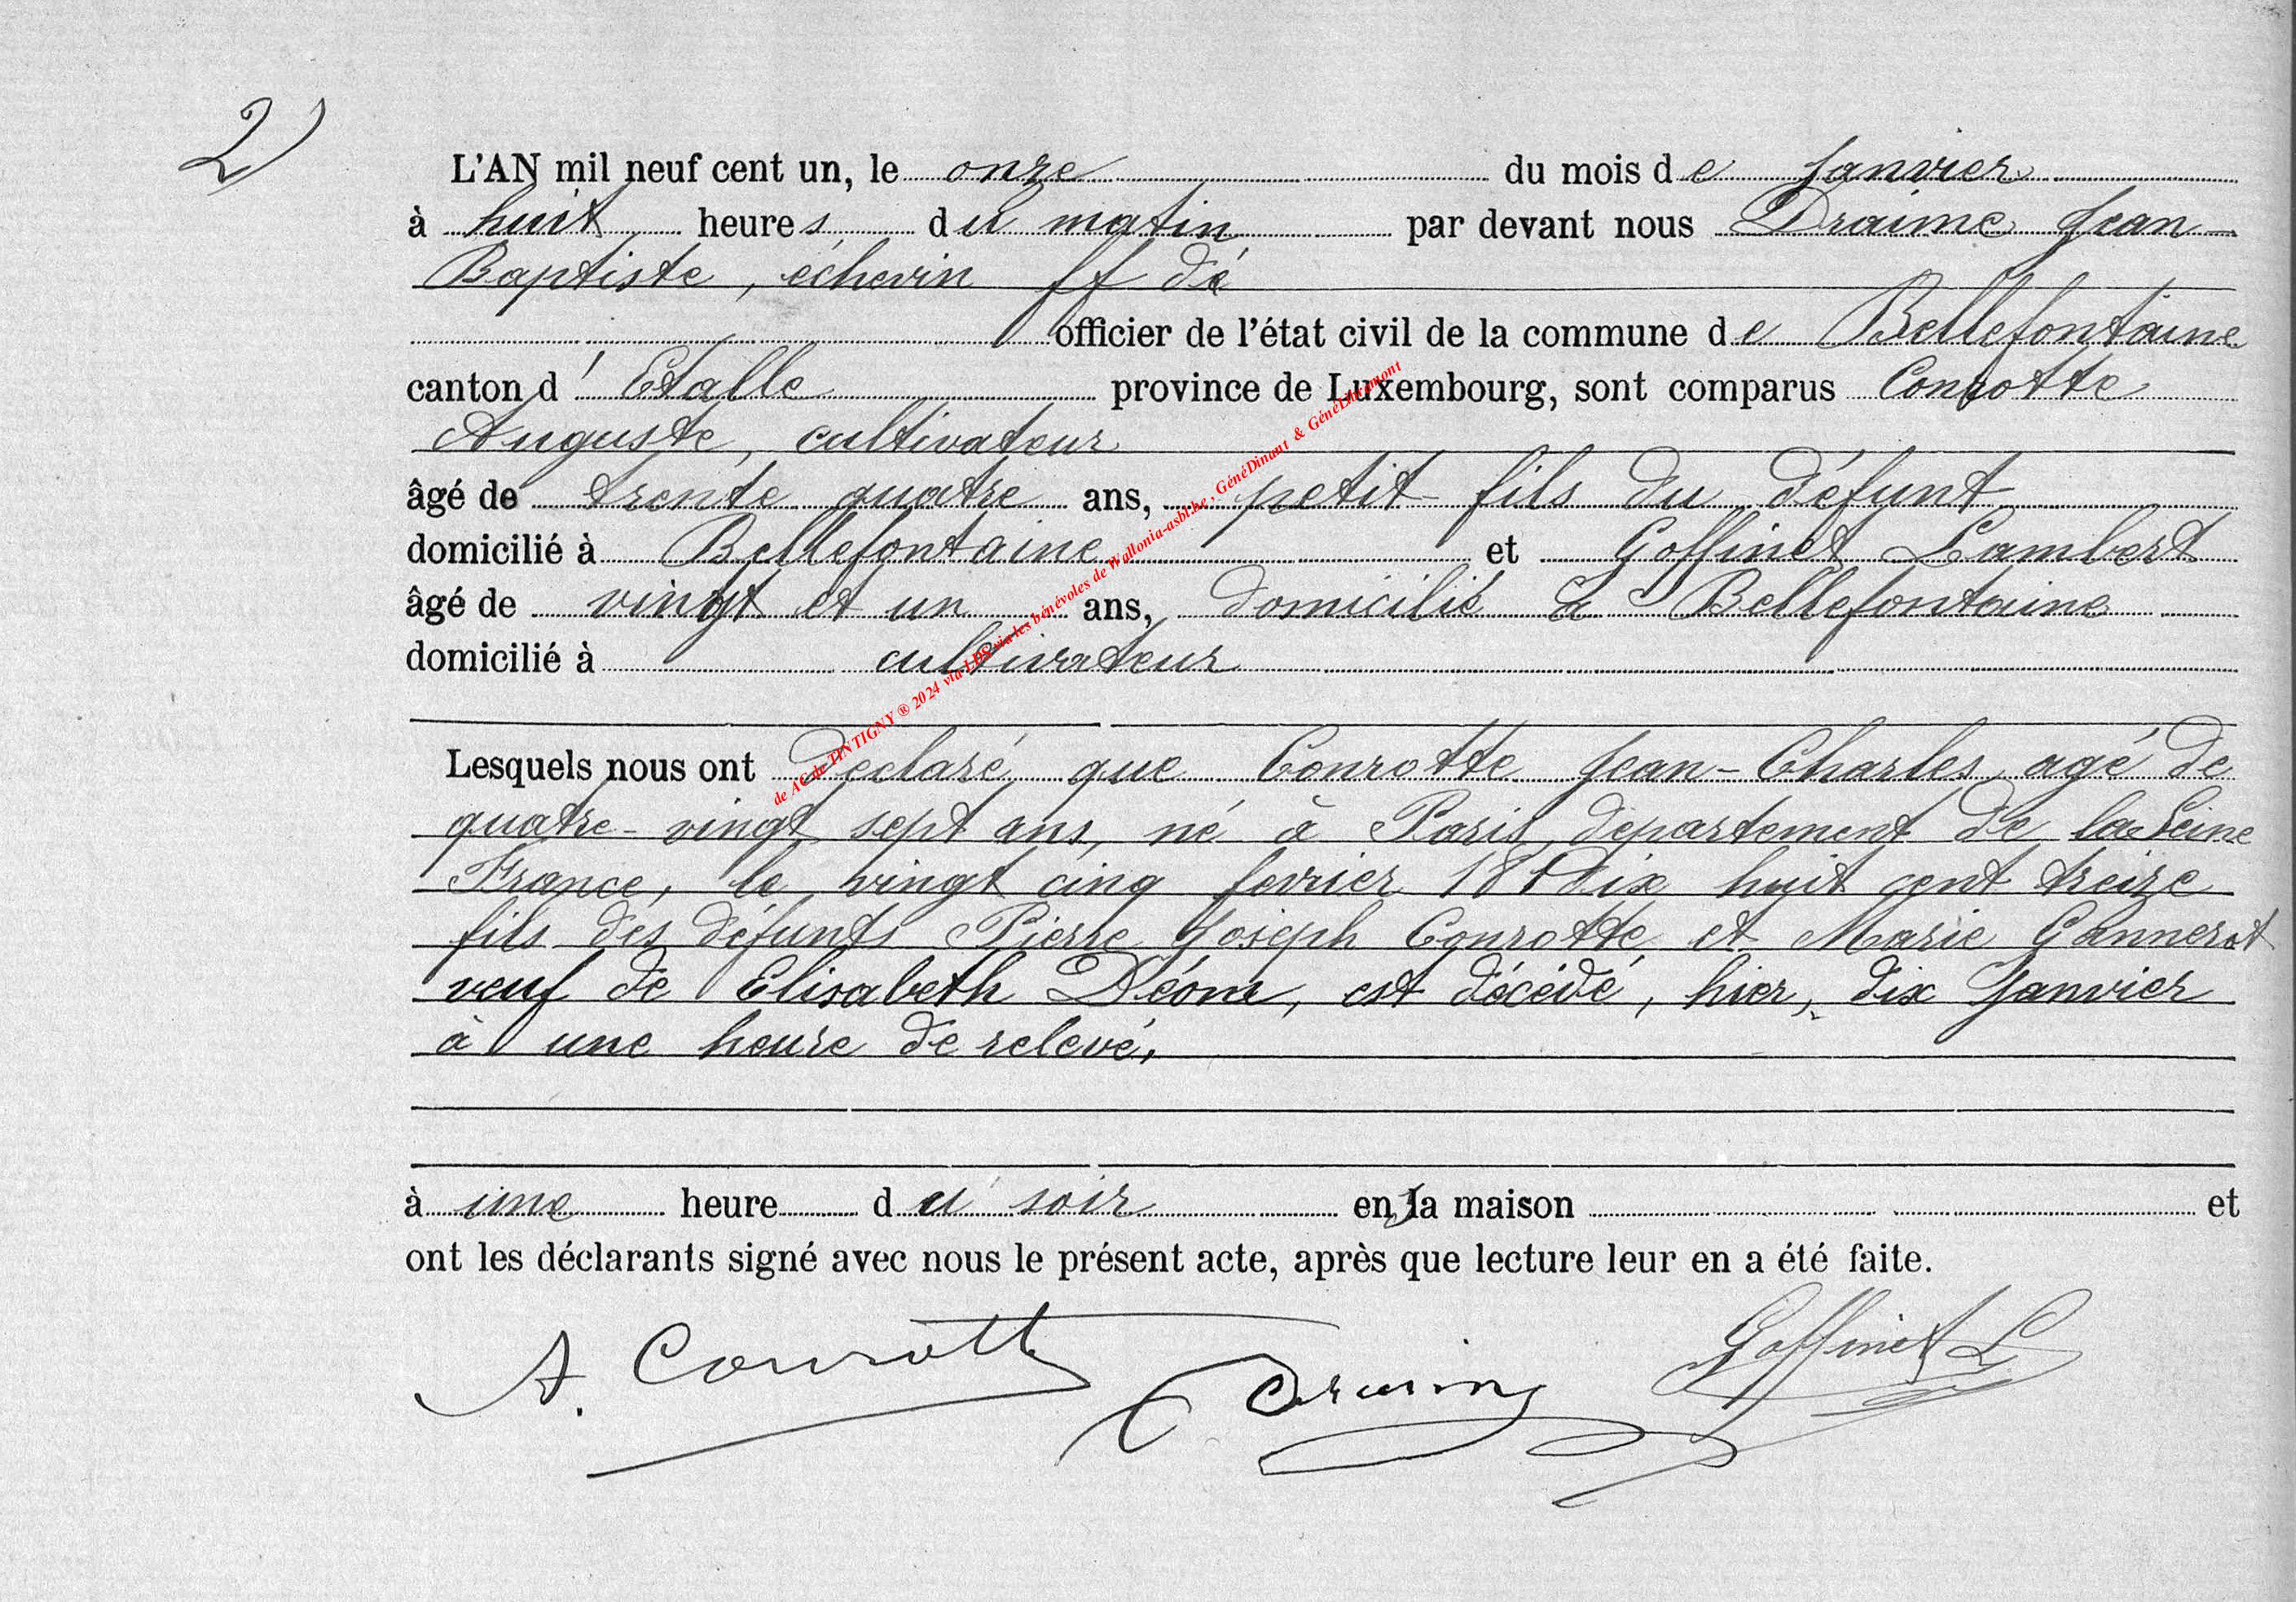 2)
L'AN mil neuf cent un, le onze du mois de Janvier
à huit heures du matin par devant nous Draime Jean-
Baptiste, échevin ff de
officier de l'état civil de la commune de Bellefontaine
canton d'Etalle province de Luxembourg, sont comparus Conrotte
Auguste, cultivateur
âgé de trente quatre ans, petit-fils du défunt
domicilié à Bellefontaine et Goffinet Lambert
âgé de vingt et un ans, domicilié à Bellefontaine
domicilié à cultivateur
Lesquels nous ont déclaré que Conrotte Jean-Charles, agé de
quatre-vingt sept ans, né à Paris, departement de la Seine
France, le vingt cinq fevrier 181 dix huit cent treize
fils des défunts Pierre Joseph Conrotte et Marie Gannerot
veuf de Elisabeth Déom, est décédé, hier, dix Janvier
à une heure de relevé.
à une heure du soir en sa maison et
ont les déclarants signé avec nous le présent acte, après que lecture leur en a été faite.
A. Conrotte Draime Goffinet L
de AC de TINTIGNY ® 2024 via LDS via les bénévoles de Wallonia-asbl.be, GénéDinant & GénéLibramont